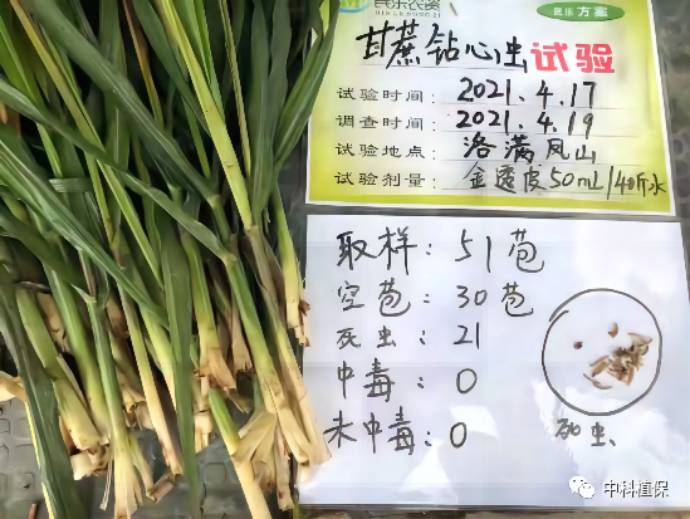 民乐农资
民乐 方案
甘蔗钻心虫试验
试验时间: 2021.4.17
调查时间: 2021.4.19
试验地点: 洛满凤山
试验剂量: 金透皮50mL/40斤水
取样: 51苞
空苞: 30苞
死虫: 21
中毒: 0
未中毒: 0
死虫
中科植保